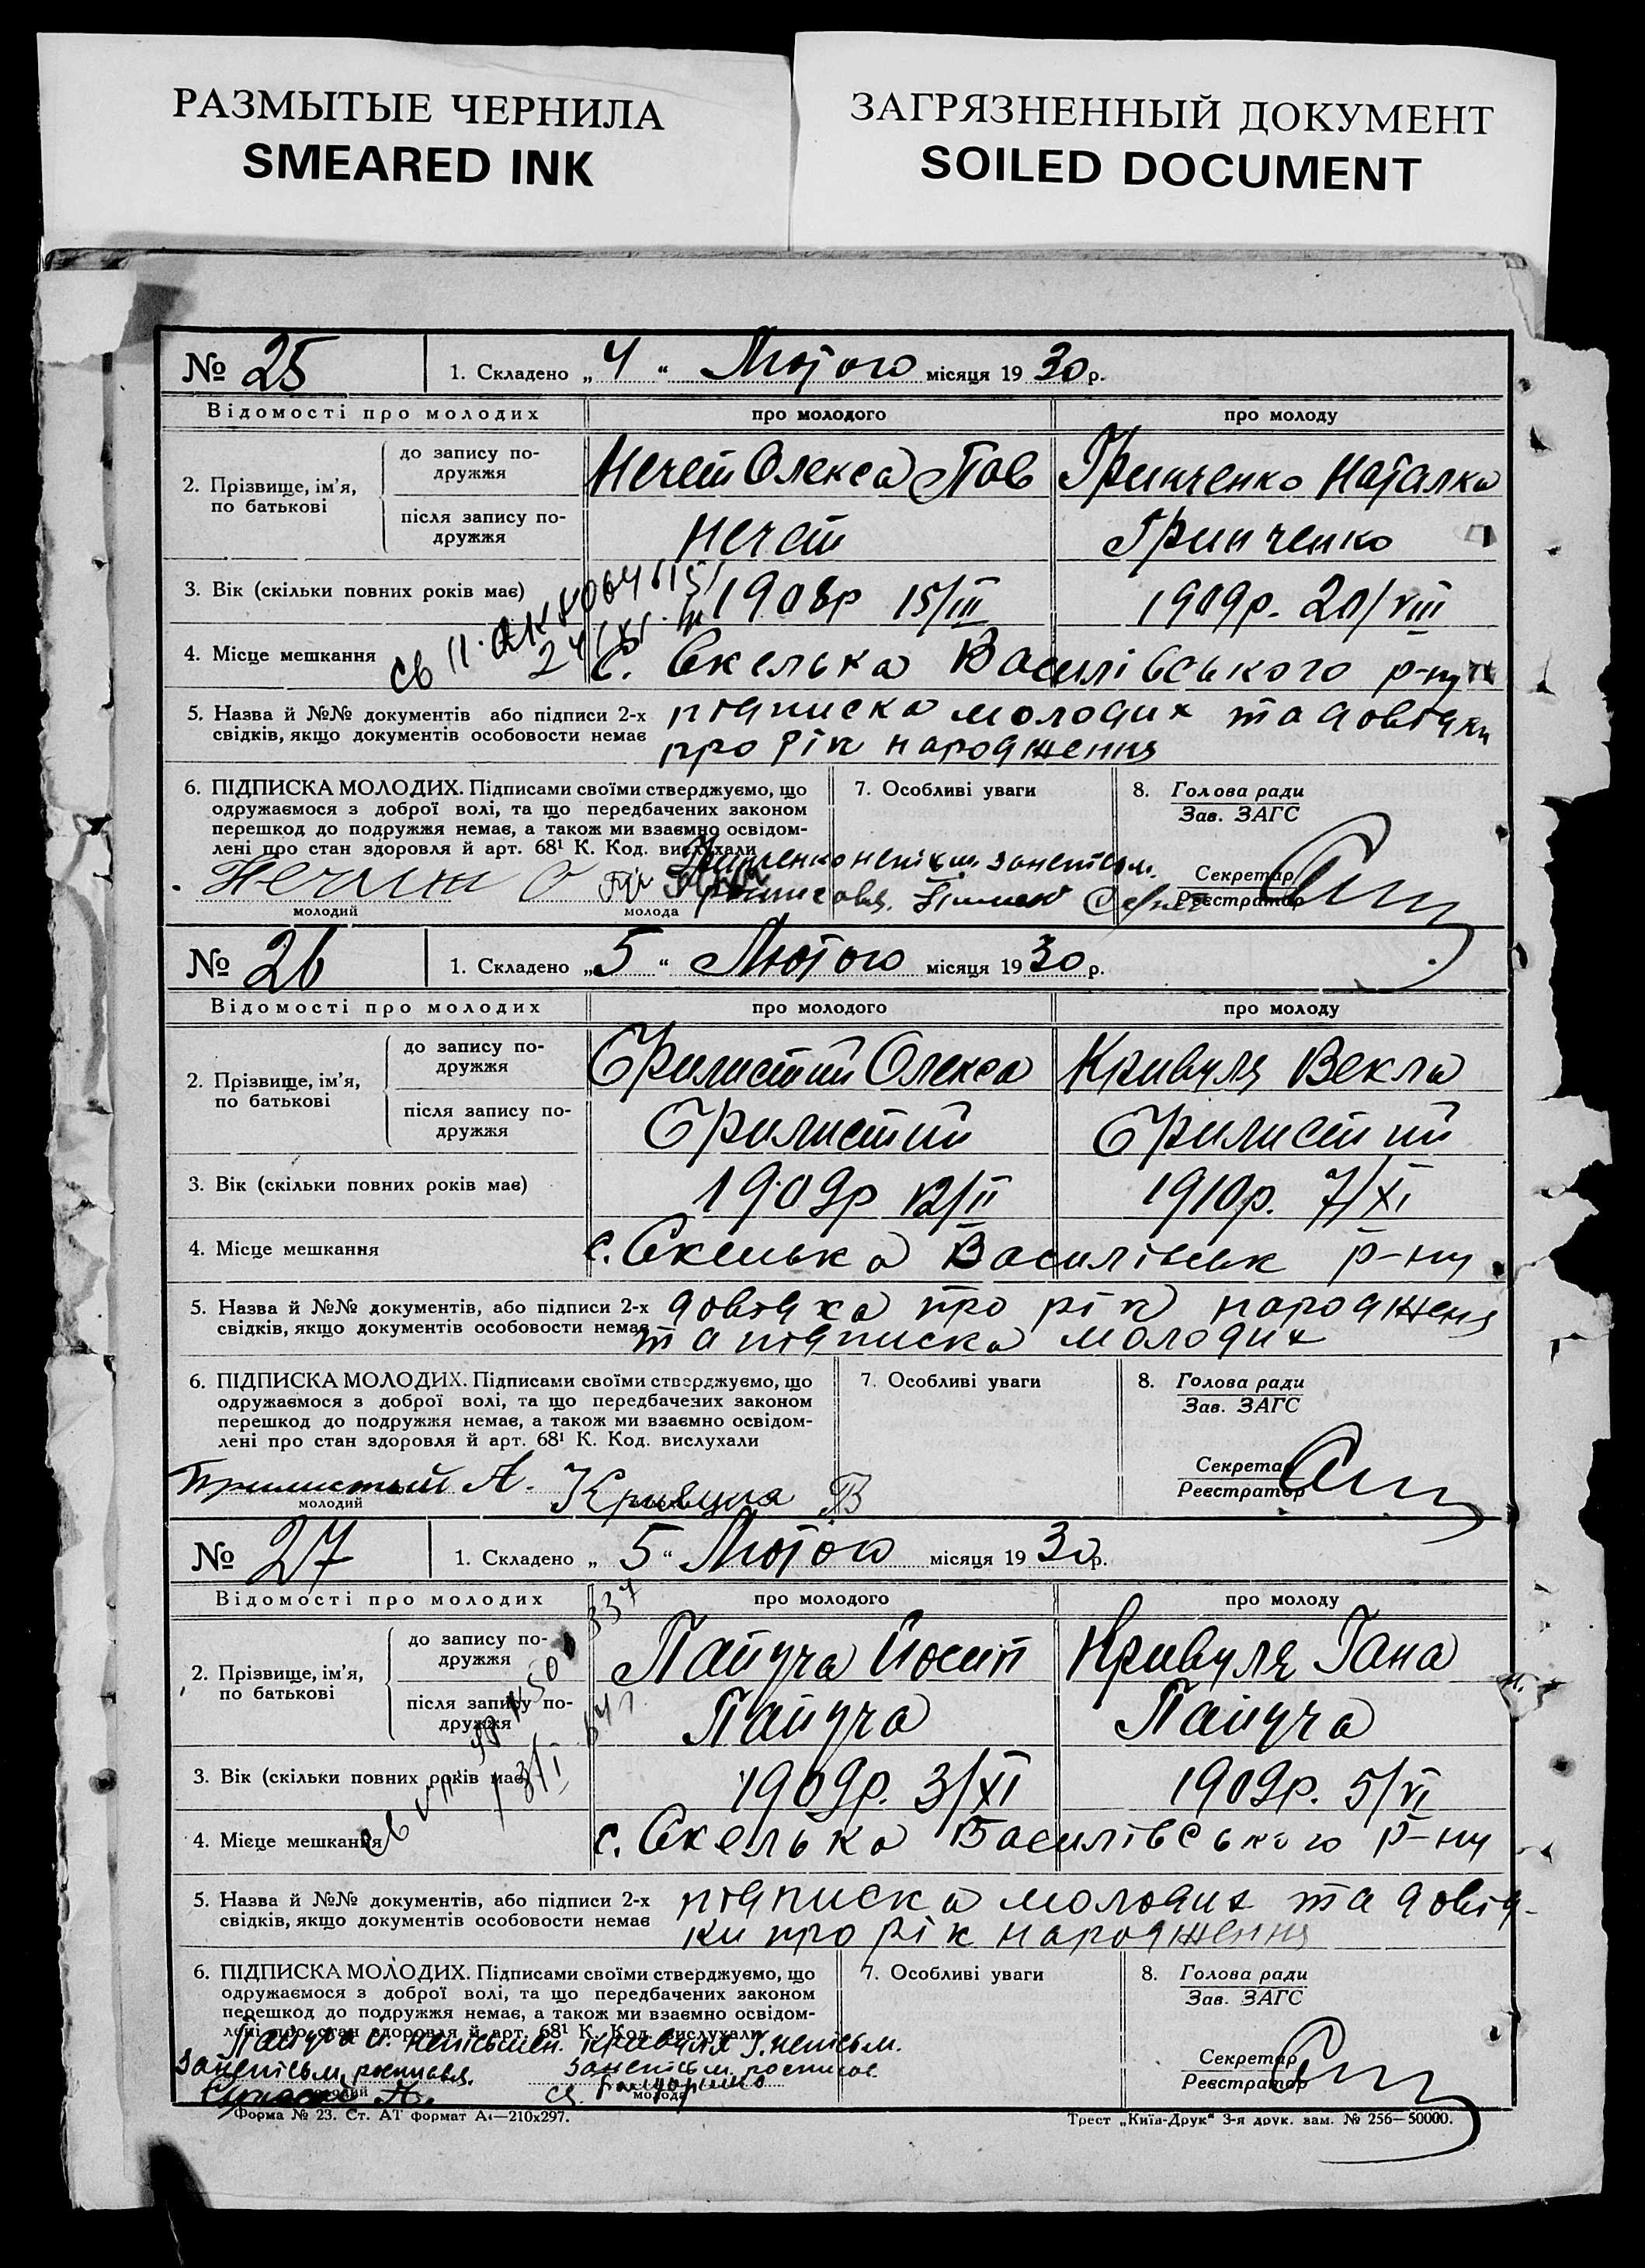 РАЗМЫТЫЕ ЧЕРНИЛА
SMEARED INK
ЗАГРЯЗНЕННЫЙ ДОКУМЕНТ
SOILED DOCUMENT
№ 25
1. Складено „ 4 “ Лютого місяця 19 30 р.
Відомості про молодих
про молодого
про молоду
2. Прізвище, ім'я, по батькові
до запису по-
дружжя
Нечет Олекса Пав
Гринченко Наталка
після запису по-
дружжя
Нечет
Гринченко
3. Вік (скільки повних років має)
1908р 15/III
1909р. 20/VIII
4. Місце мешкання
с. Скелька Василівського р-ну
5. Назва й №№ документів або підписи 2-х
свідків, якщо документів особовости немає
підписка молодих та довідки
про рік народження
6. ПІДПИСКА МОЛОДИХ. Підписами своїми стверджуємо, що
одружаємося з доброї волі, та що передбачених законом
перешкод до подружжя немає, а також ми взаємно освідом-
лені про стан здоровля й арт. 68¹ К. Код. вислухали
7. Особливі уваги
8. Голова ради
Зав. ЗАГС
Секретар
Реєстратор
молодий
молода
№ 26
1. Складено „ 5 “ Лютого місяця 19 30 р.
Відомості про молодих
про молодого
про молоду
2. Прізвище, ім'я,
по батькові
до запису по-
дружжя
Олекса
Кривуля Векла
після запису по-
дружжя
3. Вік (скільки повних років має)
1909р 12/II
1910р. 7/XI
4. Місце мешкання
с. Скелька Василівськ р-ну
5. Назва й №№ документів, або підписи 2-х
свідків, якщо документів особовости немає
довідка про рік народженя
та підписка молодих
6. ПІДПИСКА МОЛОДИХ. Підписами своїми стверджуємо, що
одружаємося з доброї волі, та що передбачених законом
перешкод до подружжя немає, а також ми взаємно освідом-
лені про стан здоровля й арт. 68¹ К. Код. вислухали
7. Особливі уваги
8. Голова ради
Зав. ЗАГС
Секретар
Реєстратор
Кривуля В
молодий
№ 27
1. Складено „ 5 “ Лютого місяця 19 30 р.
Відомості про молодих
про молодого
про молоду
2. Прізвище, ім'я,
по батькові
до запису по-
дружжя
Папуча Йосип
Кривуля Гана
після запису по-
дружжя
Папуча
Папуча
3. Вік (скільки повних років має)
1909р. 3/XI
1909р. 5/VI
4. Місце мешкання
с. Скелька Василівського р-ну
5. Назва й №№ документів, або підписи 2-х
свідків, якщо документів особовости немає
підписка молодих та довід-
ки про рік народження
6. ПІДПИСКА МОЛОДИХ. Підписами своїми стверджуємо, що
одружаємося з доброї волі, та що передбачених законом
перешкод до подружжя немає, а також ми взаємно освідом-
лені про стан здоровля й арт. 68¹ К. Код. вислухали
7. Особливі уваги
8. Голова ради
Зав. ЗАГС
Секретар
Реєстратор
молодий
молода
Форма № 23. Ст. АТ формат А4—210х297.
Трест „Київ-Друк“ 3-я друк. зам. № 256—50000.